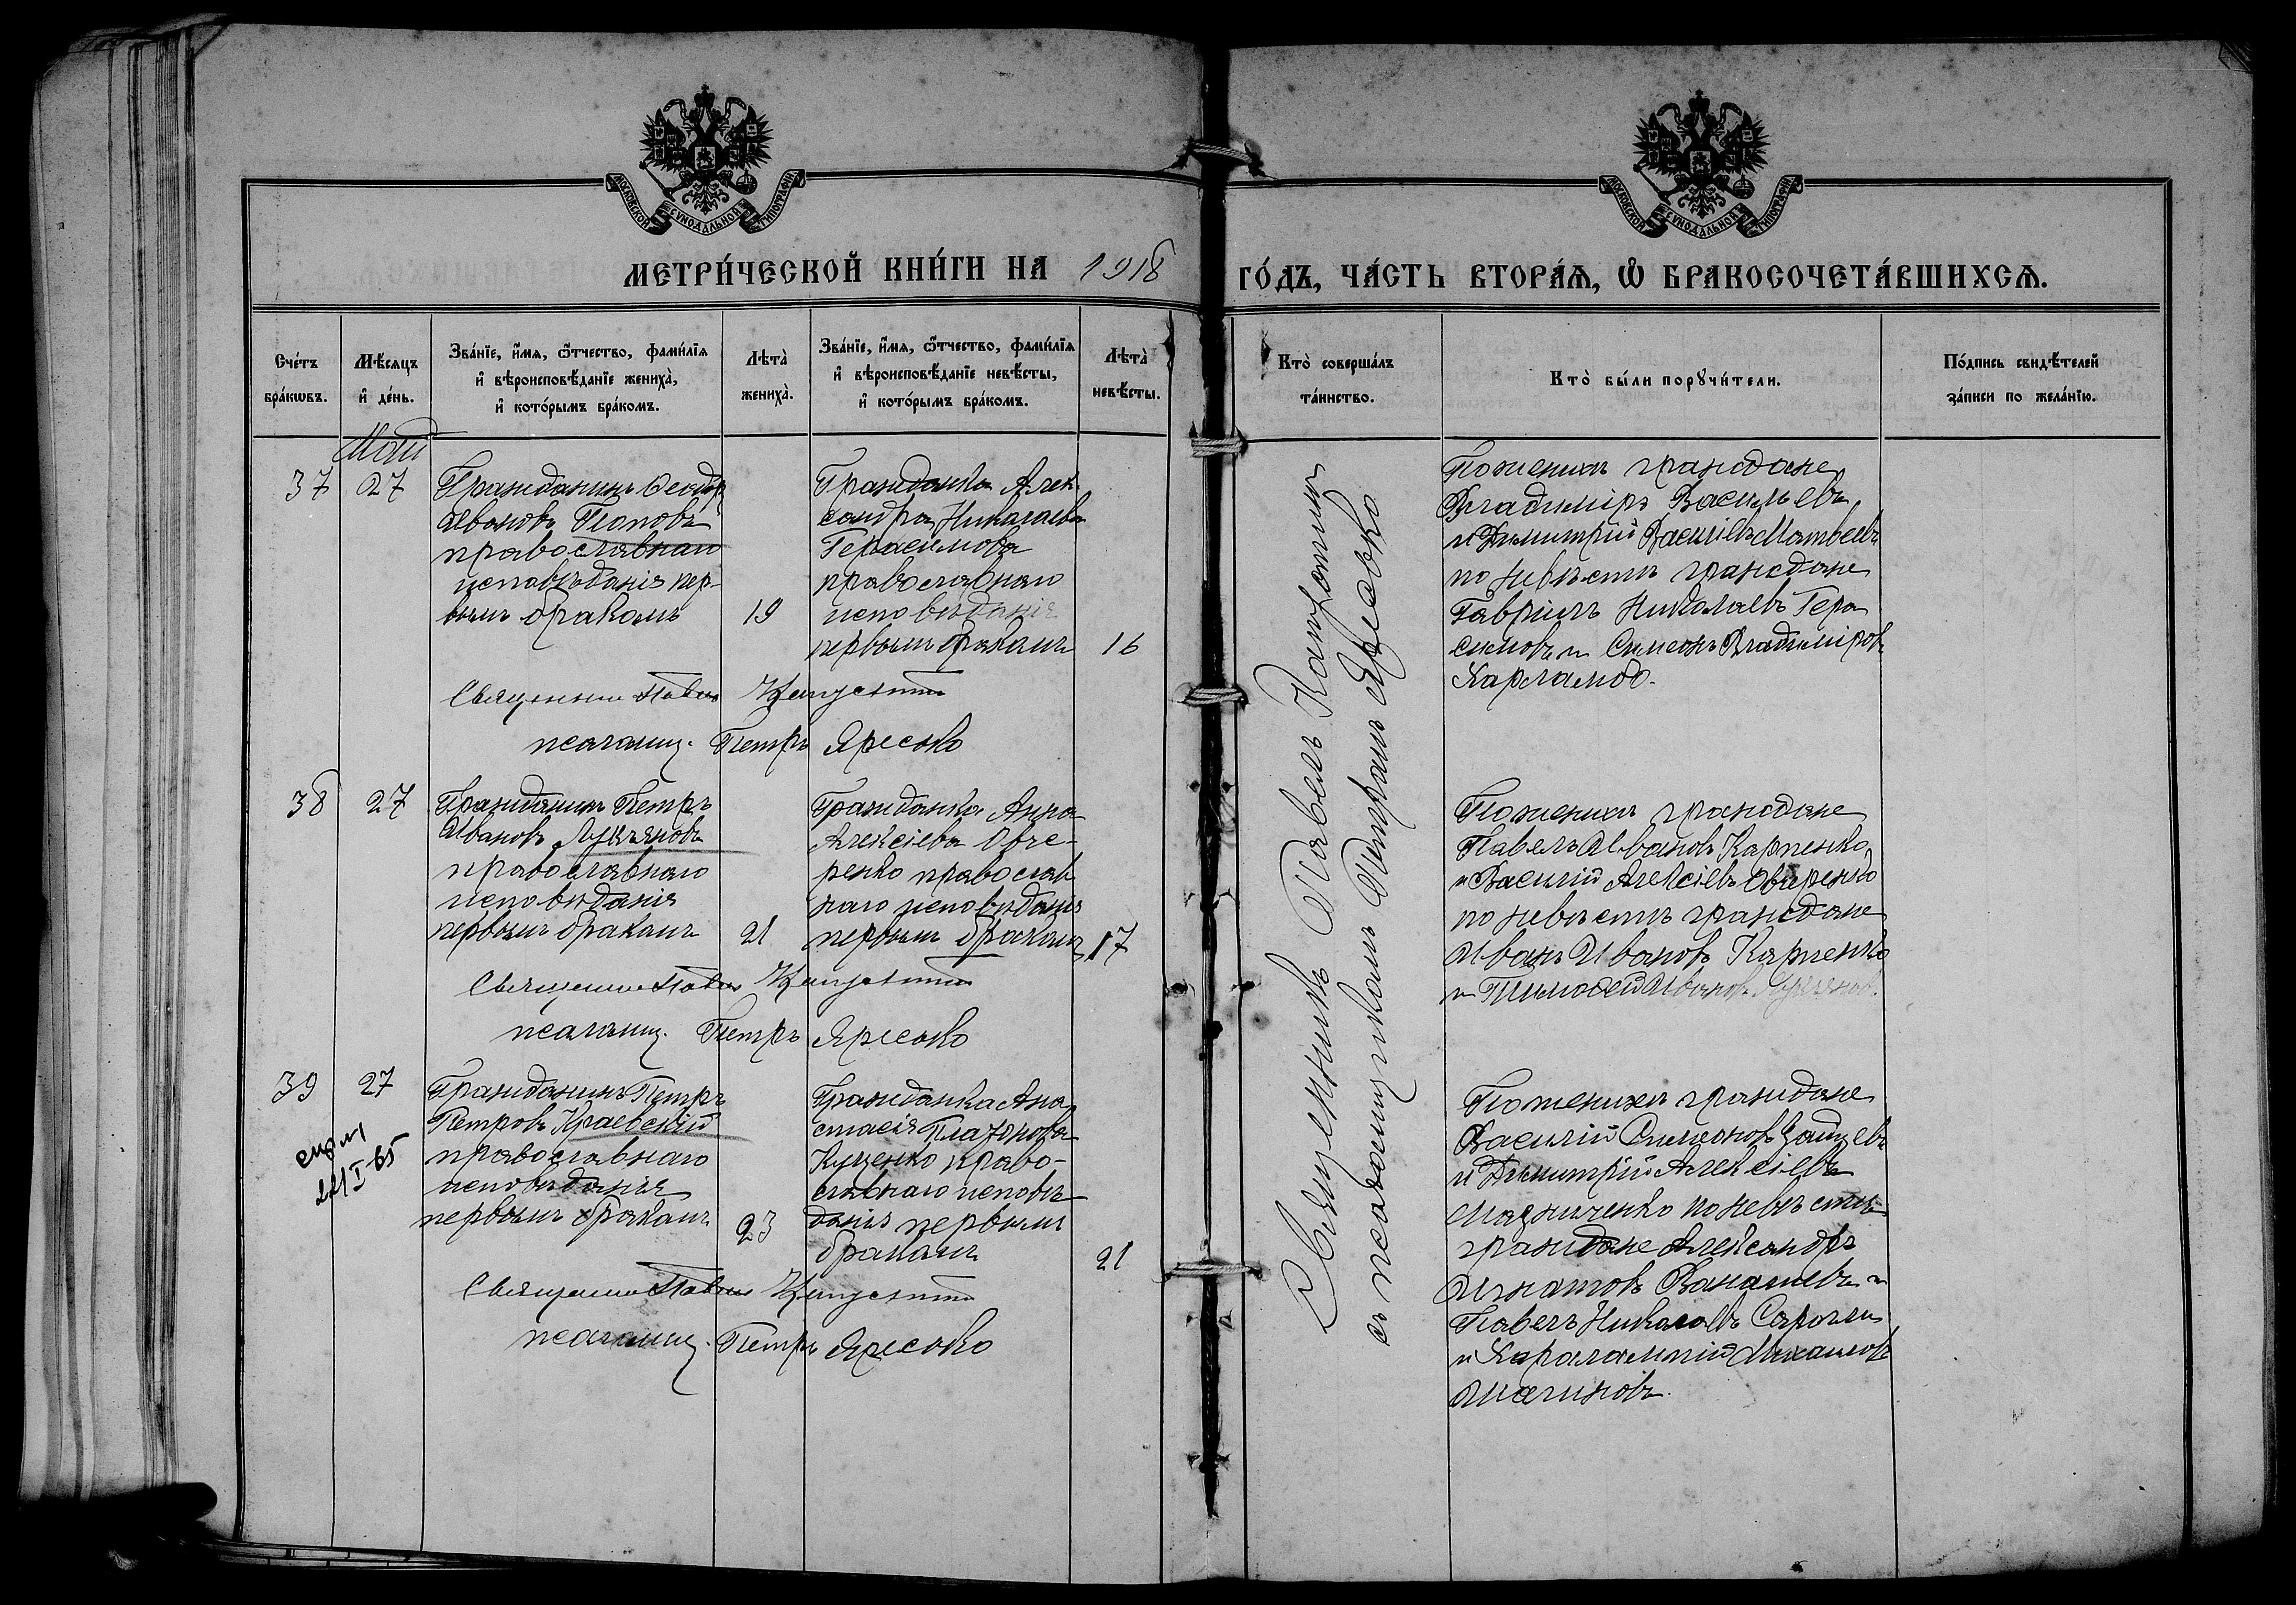 МОСКОВСКОЙ СѴНОДАЛЬНОЙ ТИПОГРАФІИ
МОСКОВСКОЙ СѴНОДАЛЬНОЙ ТИПОГРАФІИ
МЕТРИ́ЧЕСКОЙ КНИ́ГИ НА 1918 ГО́ДЪ, ЧА́СТЬ ВТОРА́Я, Ѡ҆ БРАКОСОЧЕТА́ВШИХСЯ.
Сче́тъ
бра́кѡвъ.
Мѣ́сяцъ
и҆ де́нь.
Зва́нїе, и҆́мя, ѻ҆́тчество, фами́лїя
и҆ вѣроисповѣ́данїе жениха̀,
и҆ кото́рымъ бра́комъ.
Лѣта̀
жениха̀.
Зва́нїе, и҆́мя, ѻ҆́тчество, фами́лїя
и҆ вѣроисповѣ́данїе невѣ́сты,
и҆ кото́рымъ бра́комъ.
Лѣта̀
невѣ́сты.
Кто̀ соверша́лъ
та́инство.
Кто̀ бы́ли порꙋчи́тели.
По́дпись свидѣ́телей
за́писи по жела́нїю.
Май
37
27
Гражданинъ Ѳеодоръ
Ивановъ Поповъ
православнаго
исповѣданія пер-
вымъ бракомъ
19
Гражданка Алек-
сандра Николаева
Герасимова
православнаго
исповѣданія
первымъ бракомъ
16
Поженихѣ граждане
Владиміръ Васильевъ
и Димитрій Василіевъ Матвеевъ
по невѣстѣ граждане
Гавріилъ Николаевъ Гера
симовъ и Симеонъ Владиміровъ
Харламов.
Священникъ Павелъ Капустинъ
псаломщ. Петръ Яресько
38
27
Гражданинъ Петръ
Ивановъ Лукьяновъ
православнаго
исповѣданія
первымъ бракомъ
21
Гражданка Анна
Алексіева Овче-
ренко православ
наго исповѣданія
первымъ бракомъ
17
Поженихѣ граждане
Павелъ Ивановъ Карпенко
и Василій Алексіевъ Овчаренко
по невѣстѣ граждане
Иванъ Ивановъ Карпенко
и Тимофей Иванов. Лукьянов.
Священникъ Павелъ Капустинъ
псаломщ. Петръ Яресько
39
27
22/I-65
Гражданинъ Петръ
Петровъ Краевскій
православнаго
исповѣданія
первымъ бракомъ
23
Гражданка Ана
стасія Платонова
Куценко право-
славнаго исповѣ
данія первымъ
бракомъ
21
Поженихѣ граждане
Василій Симеоновъ Зайцевъ
и Димитрій Алексіевъ
по невѣстѣ
граждане Александръ
Игнатовъ
Павелъ Николаевъ
и Харалампій Михаиловъ
Шагиновъ.
Священникъ Павелъ Капустинъ
псаломщ. Петръ Яресько
Священникъ Павелъ Капустинъ
съ псаломщикомъ Петромъ Яресько